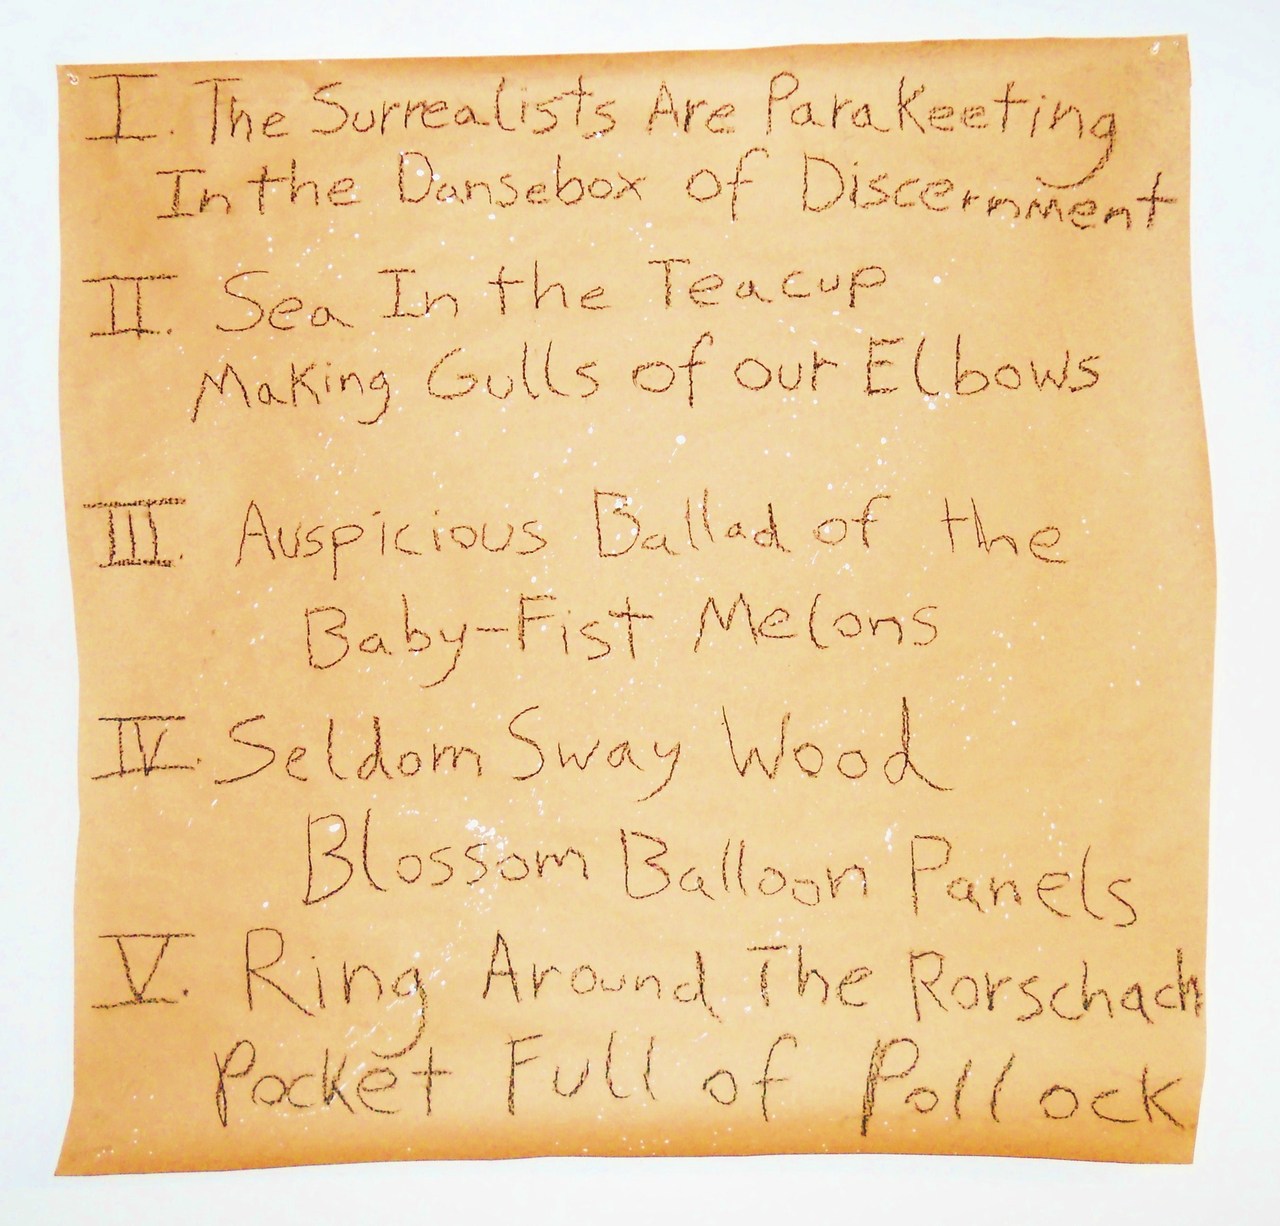 I. The Surrealists Are Parakeeting
In the Dansebox of Discernment
II. Sea In the Teacup
Making Gulls of our Elbows
III. Auspicious Ballad of the
Baby-Fist Melons
IV. Seldom Sway Wood
Blossom Balloon Panels
V. Ring Around The Rorschach
Pocket Full of Pollock